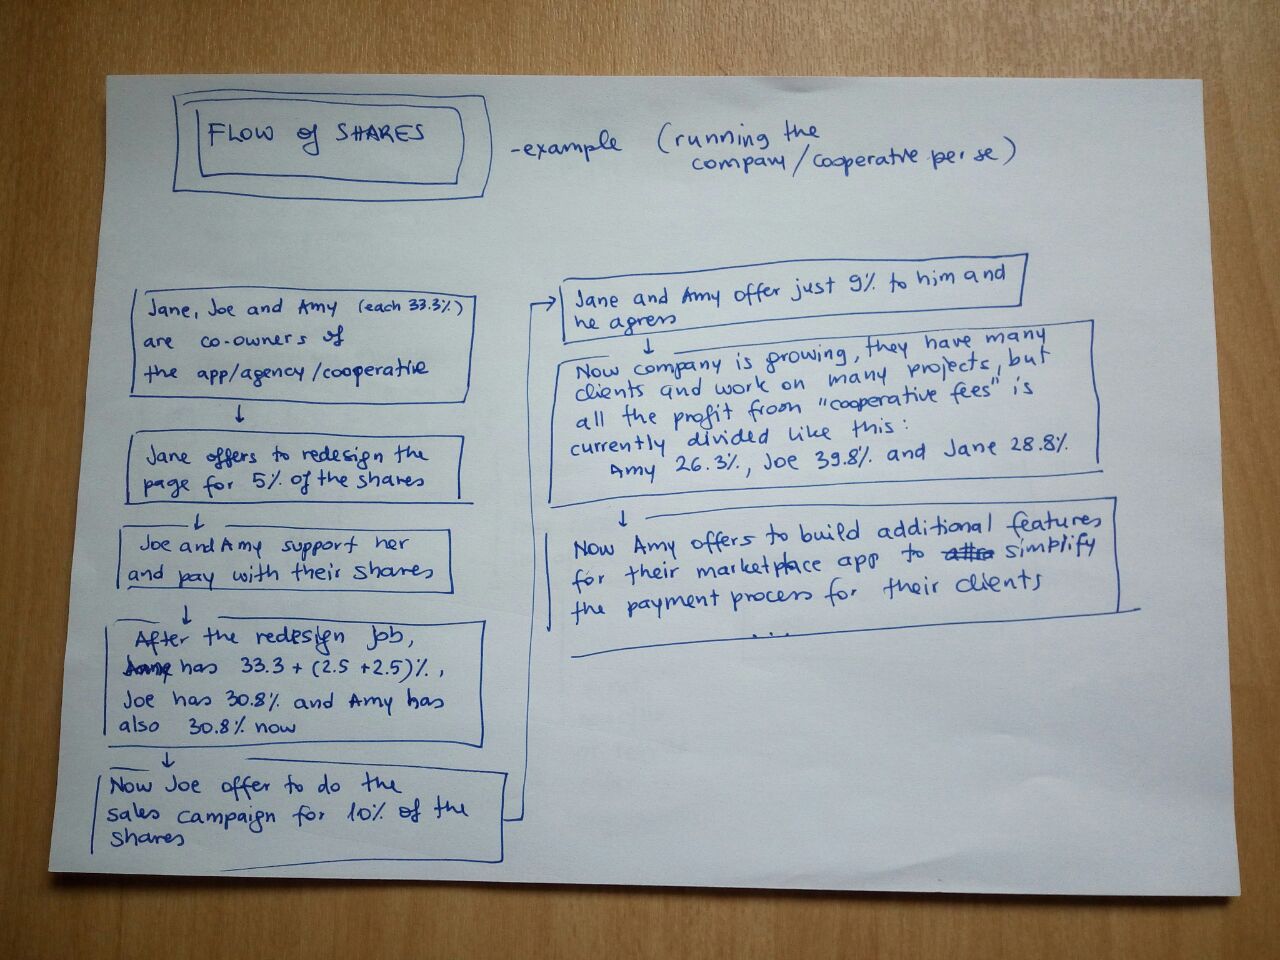 FLOW of SHARES
-example (running the
company/cooperative per se)
Jane, Joe and Amy (each 33.3%)
are co-owners of
the app/agency/cooperative
Jane offers to redesign the
page for 5% of the shares
Joe and Amy support her
and pay with their shares
After the redesign job,
Jane has 33.3 + (2.5 + 2.5)%,
Joe has 30.8% and Amy has
also 30.8% now
Now Joe offer to do the
sales campaign for 10% of the
shares
Jane and Amy offer just 9% to him and
he agrees
Now company is growing, they have many
clients and work on many projects, but
all the profit from "cooperative fees" is
currently divided like this:
Amy 26.3%, Joe 39.8% and Jane 28.8%
Now Amy offers to build additional features
for their marketplace app to simplify
the payment process for their clients
...